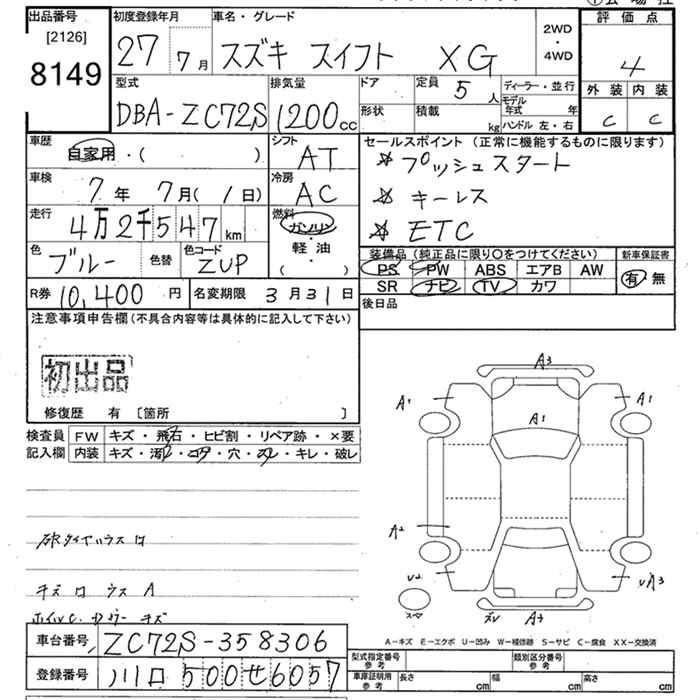 出品番号 初度登録年月 車名・グレード 2WD・4WD 評価点
[2126]
8149 27 7月 スズキ スイフト XG 4
型式 排気量 ドア 定員 5人 ディーラー・並行 外装 内装
DBA-ZC72S 1200cc 形状 積載 kg モデル年式 年 ハンドル 左・右 C C
車歴 自家用・( ) シフト AT セールスポイント (正常に機能するものに限ります)
プッシュスタート
車検 7年 7月( 1日) 冷房 AC キーレス
走行 4万2千547km 燃料 ガソリン 軽・油 ( ) ETC
色 ブルー 色替 色コード ZUP 装備品 (純正品に限り〇をつけてください) 新車保証書
PS PW ABS エアB AW 有・無
SR ナビ TV カワ
R券 10,400円 名変期限 3月31日 後日品
注意事項申告欄 (不具合内容等は具体的に記入して下さい)
初出品
修復歴 有 [箇所 ]
検査員 FW キズ・飛石・ヒビ割・リペア跡・×要
記入欄 内装 キズ・汚・コゲ・穴・スレ・キレ・破レ
A3
A1 A1 A1
A2
U2 UA3
A4
キズ
A-キズ E-エクボ U-凹み W-補修跡 S-サビ C-腐食 XX-交換済
車台番号 ZC72S-358306
登録番号 川口 500 せ 6057
型式指定番号 参考 類別区分番号 参考
車庫証明用 参考 長さ cm 幅 cm 高さ cm